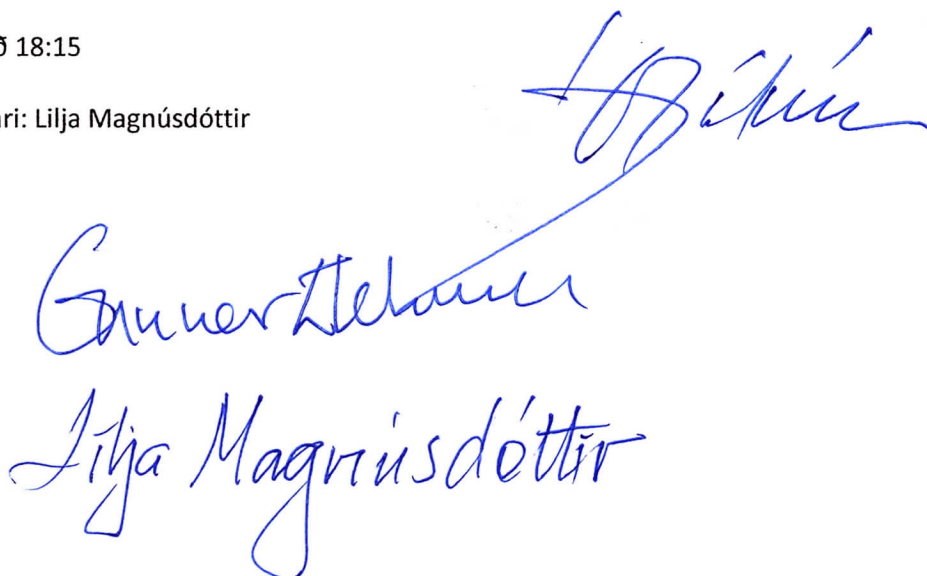 ð 18:15
ri: Lilja Magnúsdóttir
Gunnar
Lilja Magnúsdóttir